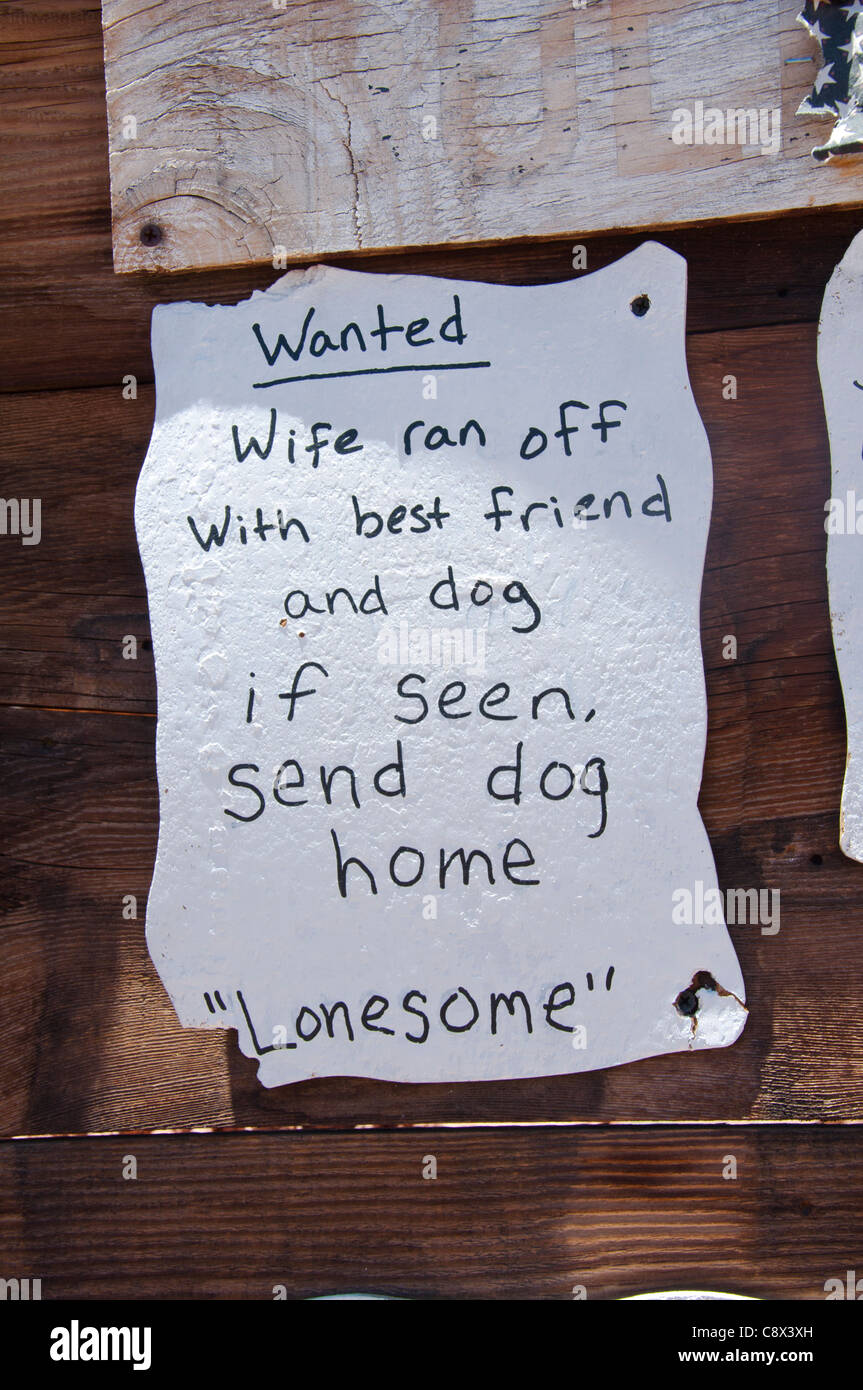 Wanted
Wife ran off
With best friend
and dog
if seen,
send dog
home
"Lonesome"
alamy
Image ID: C8X3XH
www.alamy.com